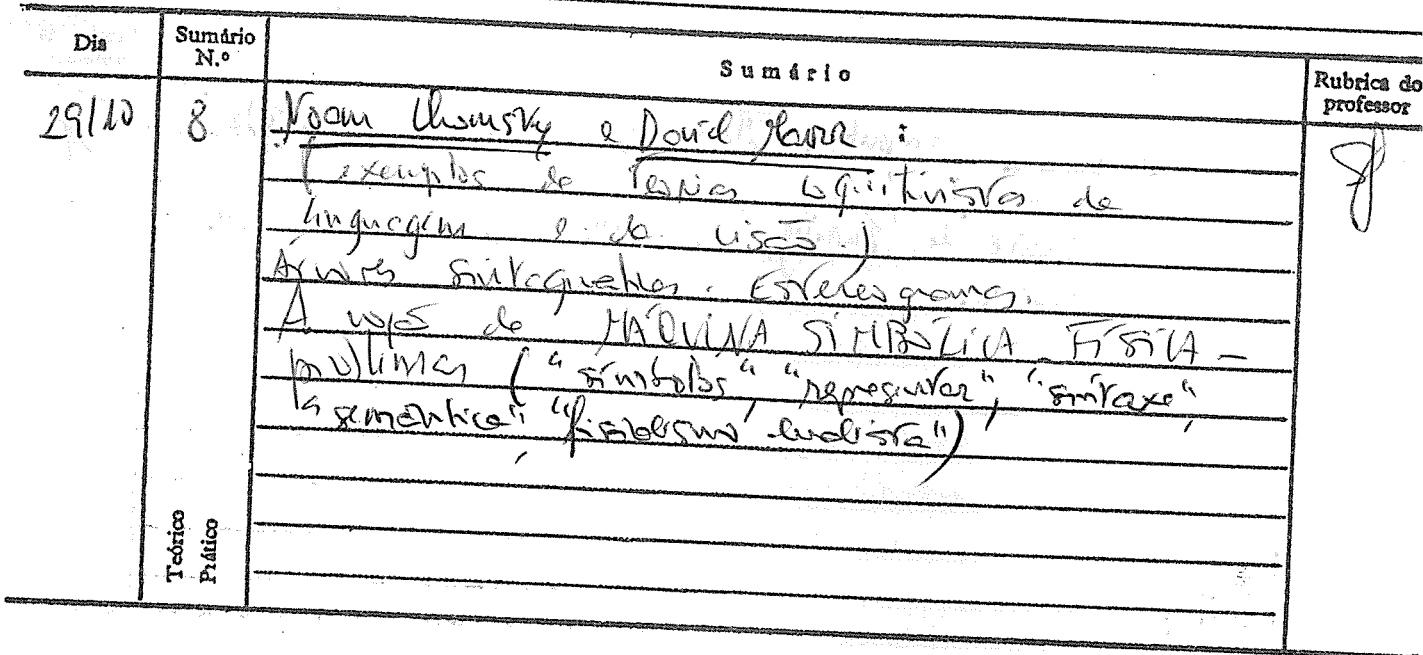 Dia
Sumário N.º
Sumário
Rubrica do professor
29/10
8
Noam Chomsky e David Marr :
(exemplos de Teorias cognitivistas da
linguagem e da visão)
Árvores sintagmáticas. Estereogramas.
A noção de MÁQUINA SIMBÓLICA FÍSICA -
problemas ("símbolos" "representar", "sintaxe",
"semântica",
Teórico
Prático